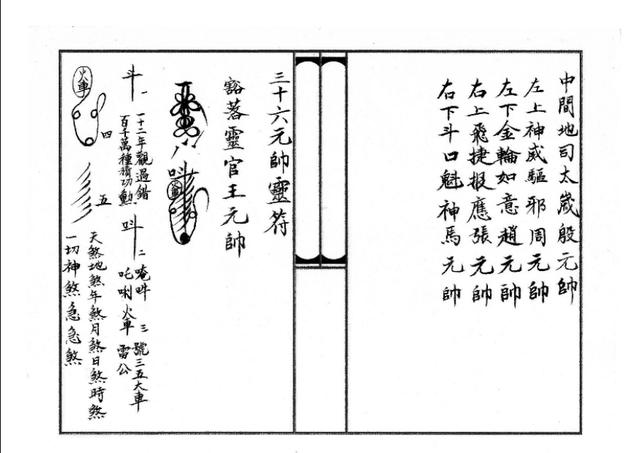 中間地司太歲殷元帥
左上神威驅邪周元帥
左下金輪如意趙元帥
右上飛捷報應張元帥
右下斗口魁神馬元帥
三十六元帥靈符
豁落靈官王元帥
斗 一
一十二年觀過錯
百千萬種積功勳
吽 二
唵吽
吒唎火車
三
號三五大車
雷公
火車
四
五
天煞地煞年煞月煞日煞時煞
一切神煞急急煞